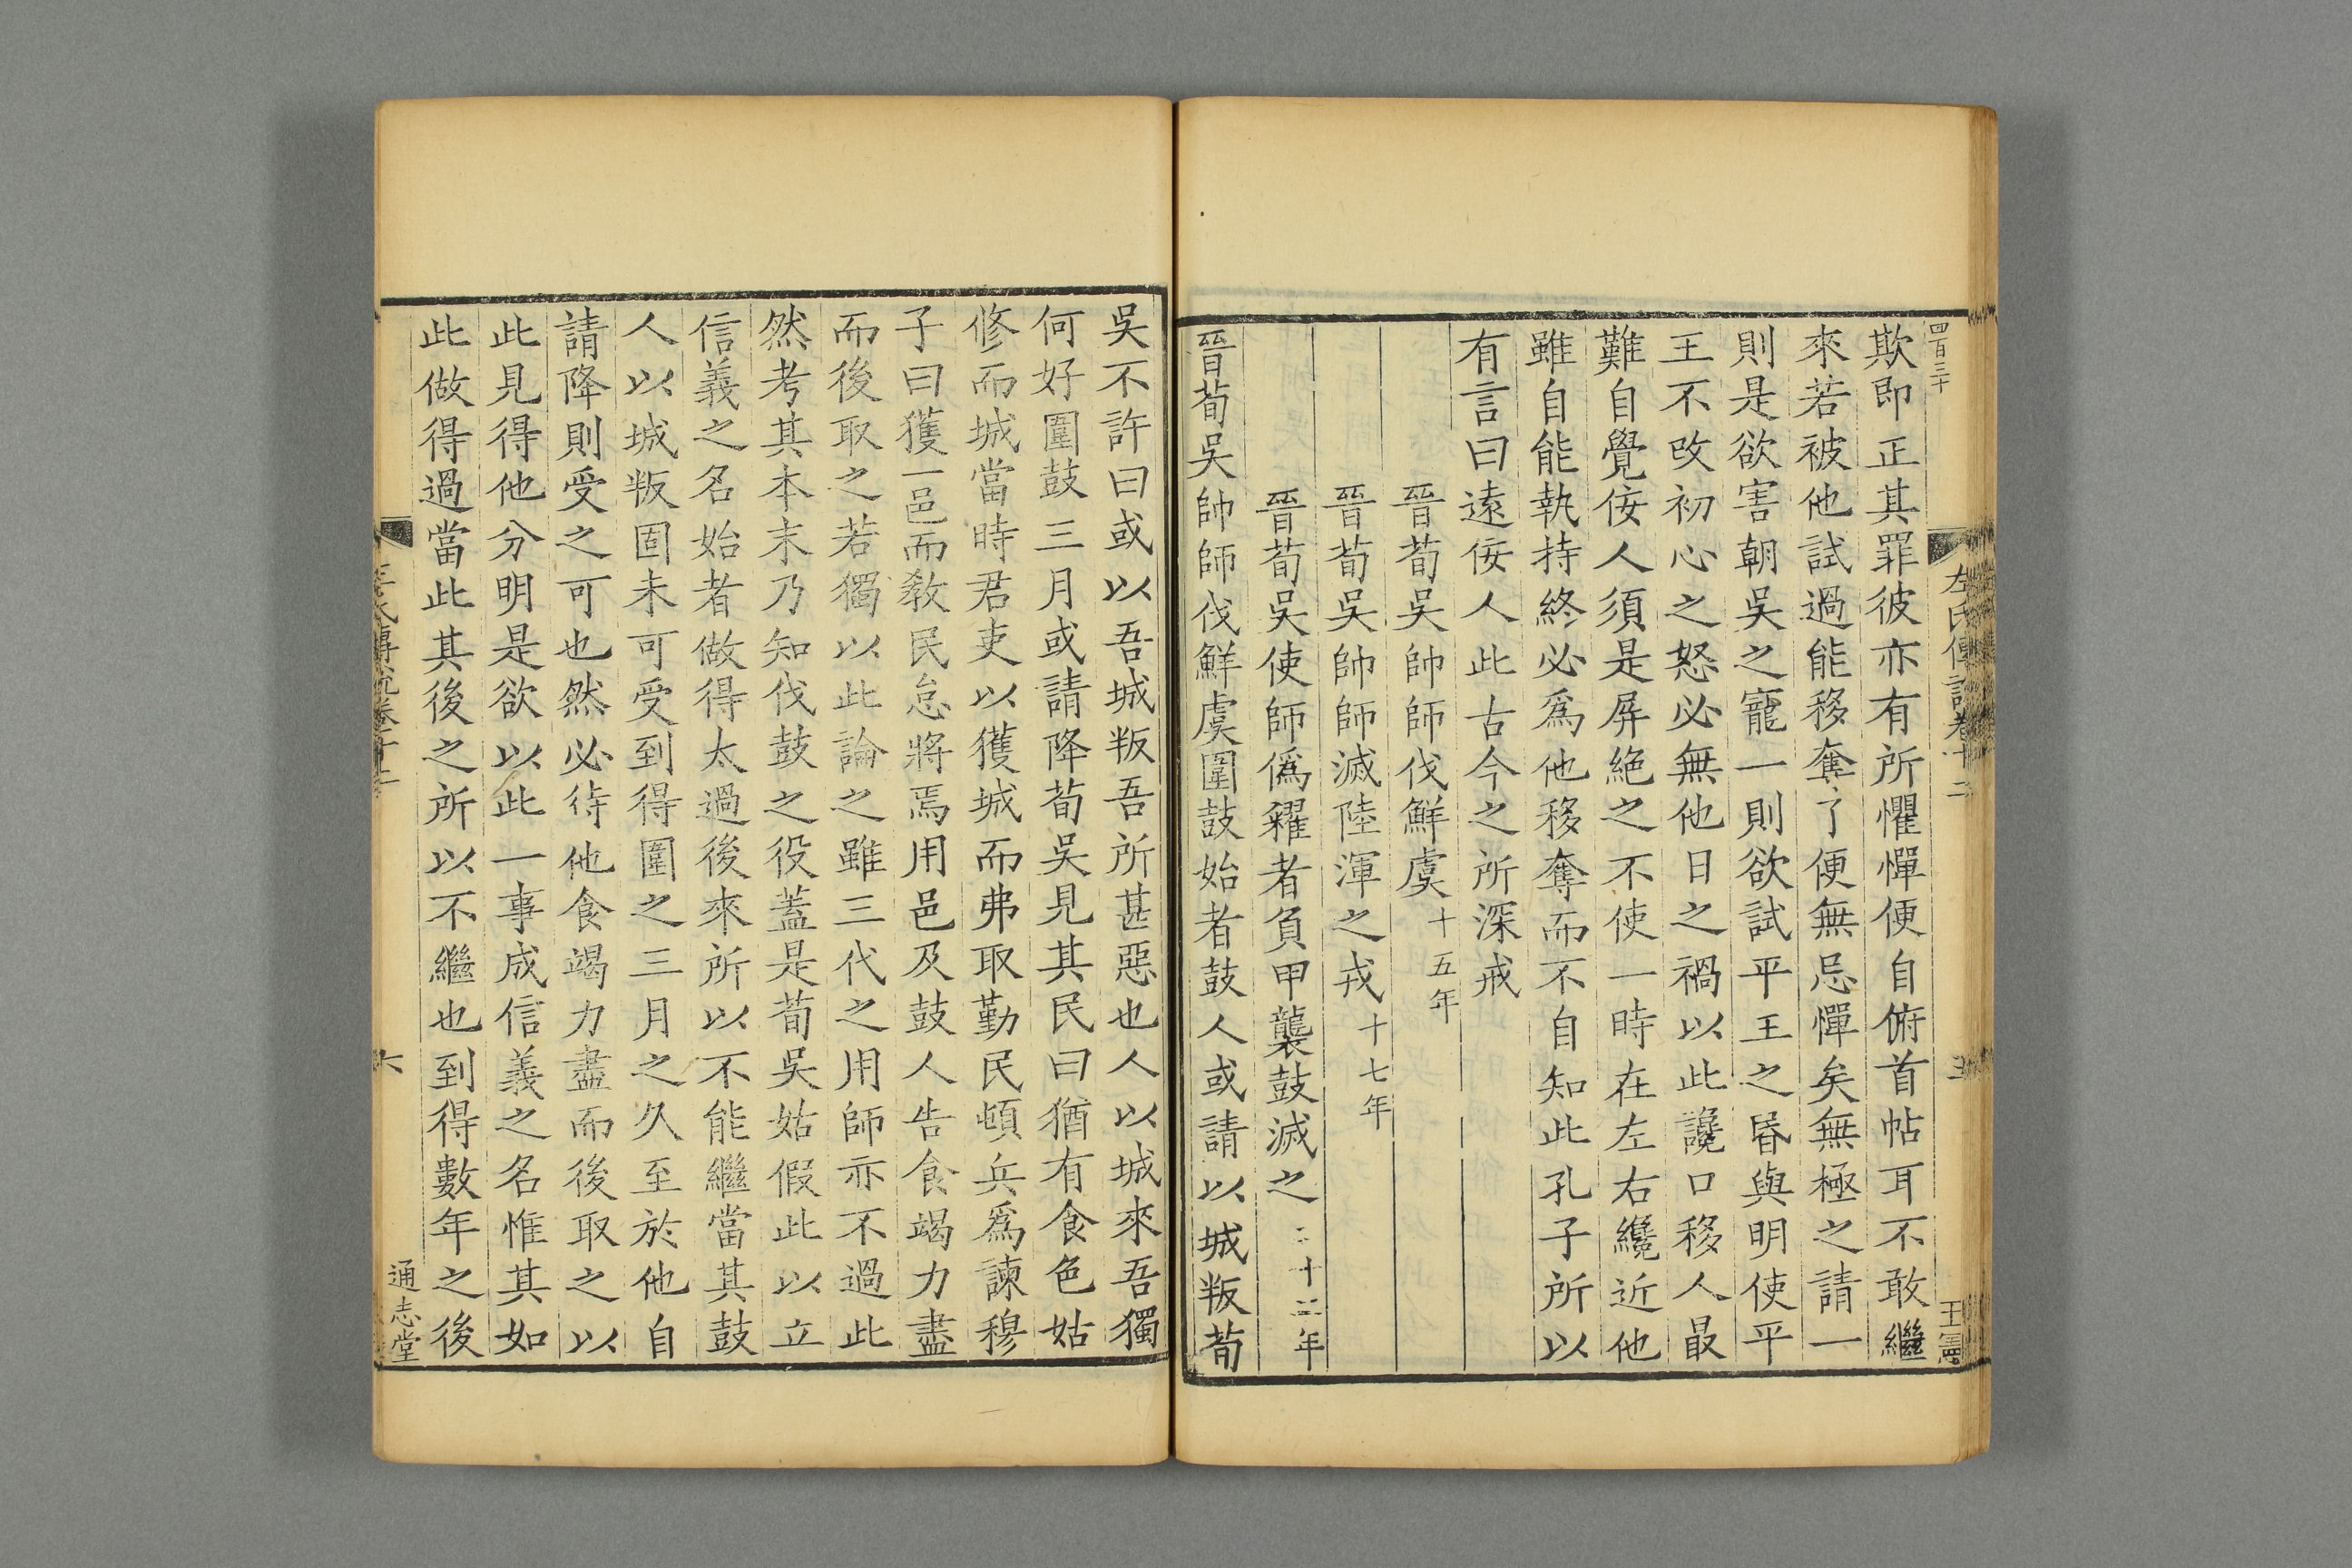 四百三十
左氏傳說卷十二
五
王憲
欺即正其罪彼亦有所懼憚便自俯首帖耳不敢繼
來若被他試過能移奪了便無忌憚矣無極之請一
則是欲害朝吳之寵一則欲試平王之昏與明使平
王不改初心之怒必無他日之禍以此讒口移人最
難自覺佞人須是屏絕之不使一時在左右纔近他
雖自能執持終必爲他移奪而不自知此孔子所以
有言曰遠佞人此古今之所深戒
晉荀吳帥師伐鮮虞十五年
晉荀吳帥師滅陸渾之戎十七年
晉荀吳使師僞糴者負甲襲鼓滅之二十二年
晉荀吳帥師伐鮮虞圍鼓始者鼓人或請以城叛荀
吳不許曰或以吾城叛吾所甚惡也人以城來吾獨
何好圍鼓三月或請降荀吳見其民曰猶有食色姑
修而城當時君吏以獲城而弗取勤民頓兵爲諫穆
子曰獲一邑而教民怠將焉用邑及鼓人告食竭力盡
而後取之若獨以此論之雖三代之用師亦不過此
然考其本末乃知伐鼓之役蓋是荀吳姑假此以立
信義之名始者做得太過後來所以不能繼當其鼓
人以城叛固未可受到得圍之三月之久至於他自
請降則受之可也然必待他食竭力盡而後取之以
此見得他分明是欲以此一事成信義之名惟其如
此做得過當此其後之所以不繼也到得數年之後
左氏傳說卷十二
六
通志堂